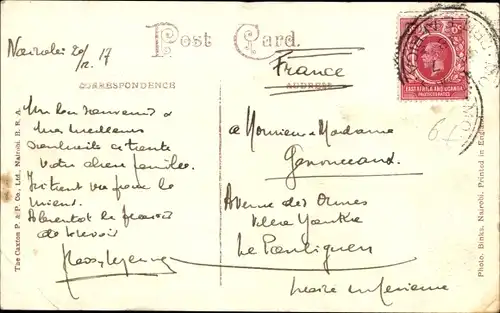 Nairobi 20/12. 17
Post Card.
France
CORRESPONDENCE
ADDRESS
EAST AFRICA AND UGANDA
PROTECTORATES
Un bon souvenir &
mes meilleurs
souhaits à toute
votre chère famille.
vu pour le
mien.
A bientôt le plaisir
de revoir
a Monsieur & Madame
Avenue des Ormes
Villa
Le Pouliguen
Loire inférieure
The Caxton P. & P. Co., Ltd., Nairobi, B. E. A.
Photo, Binks, Nairobi. Printed in England